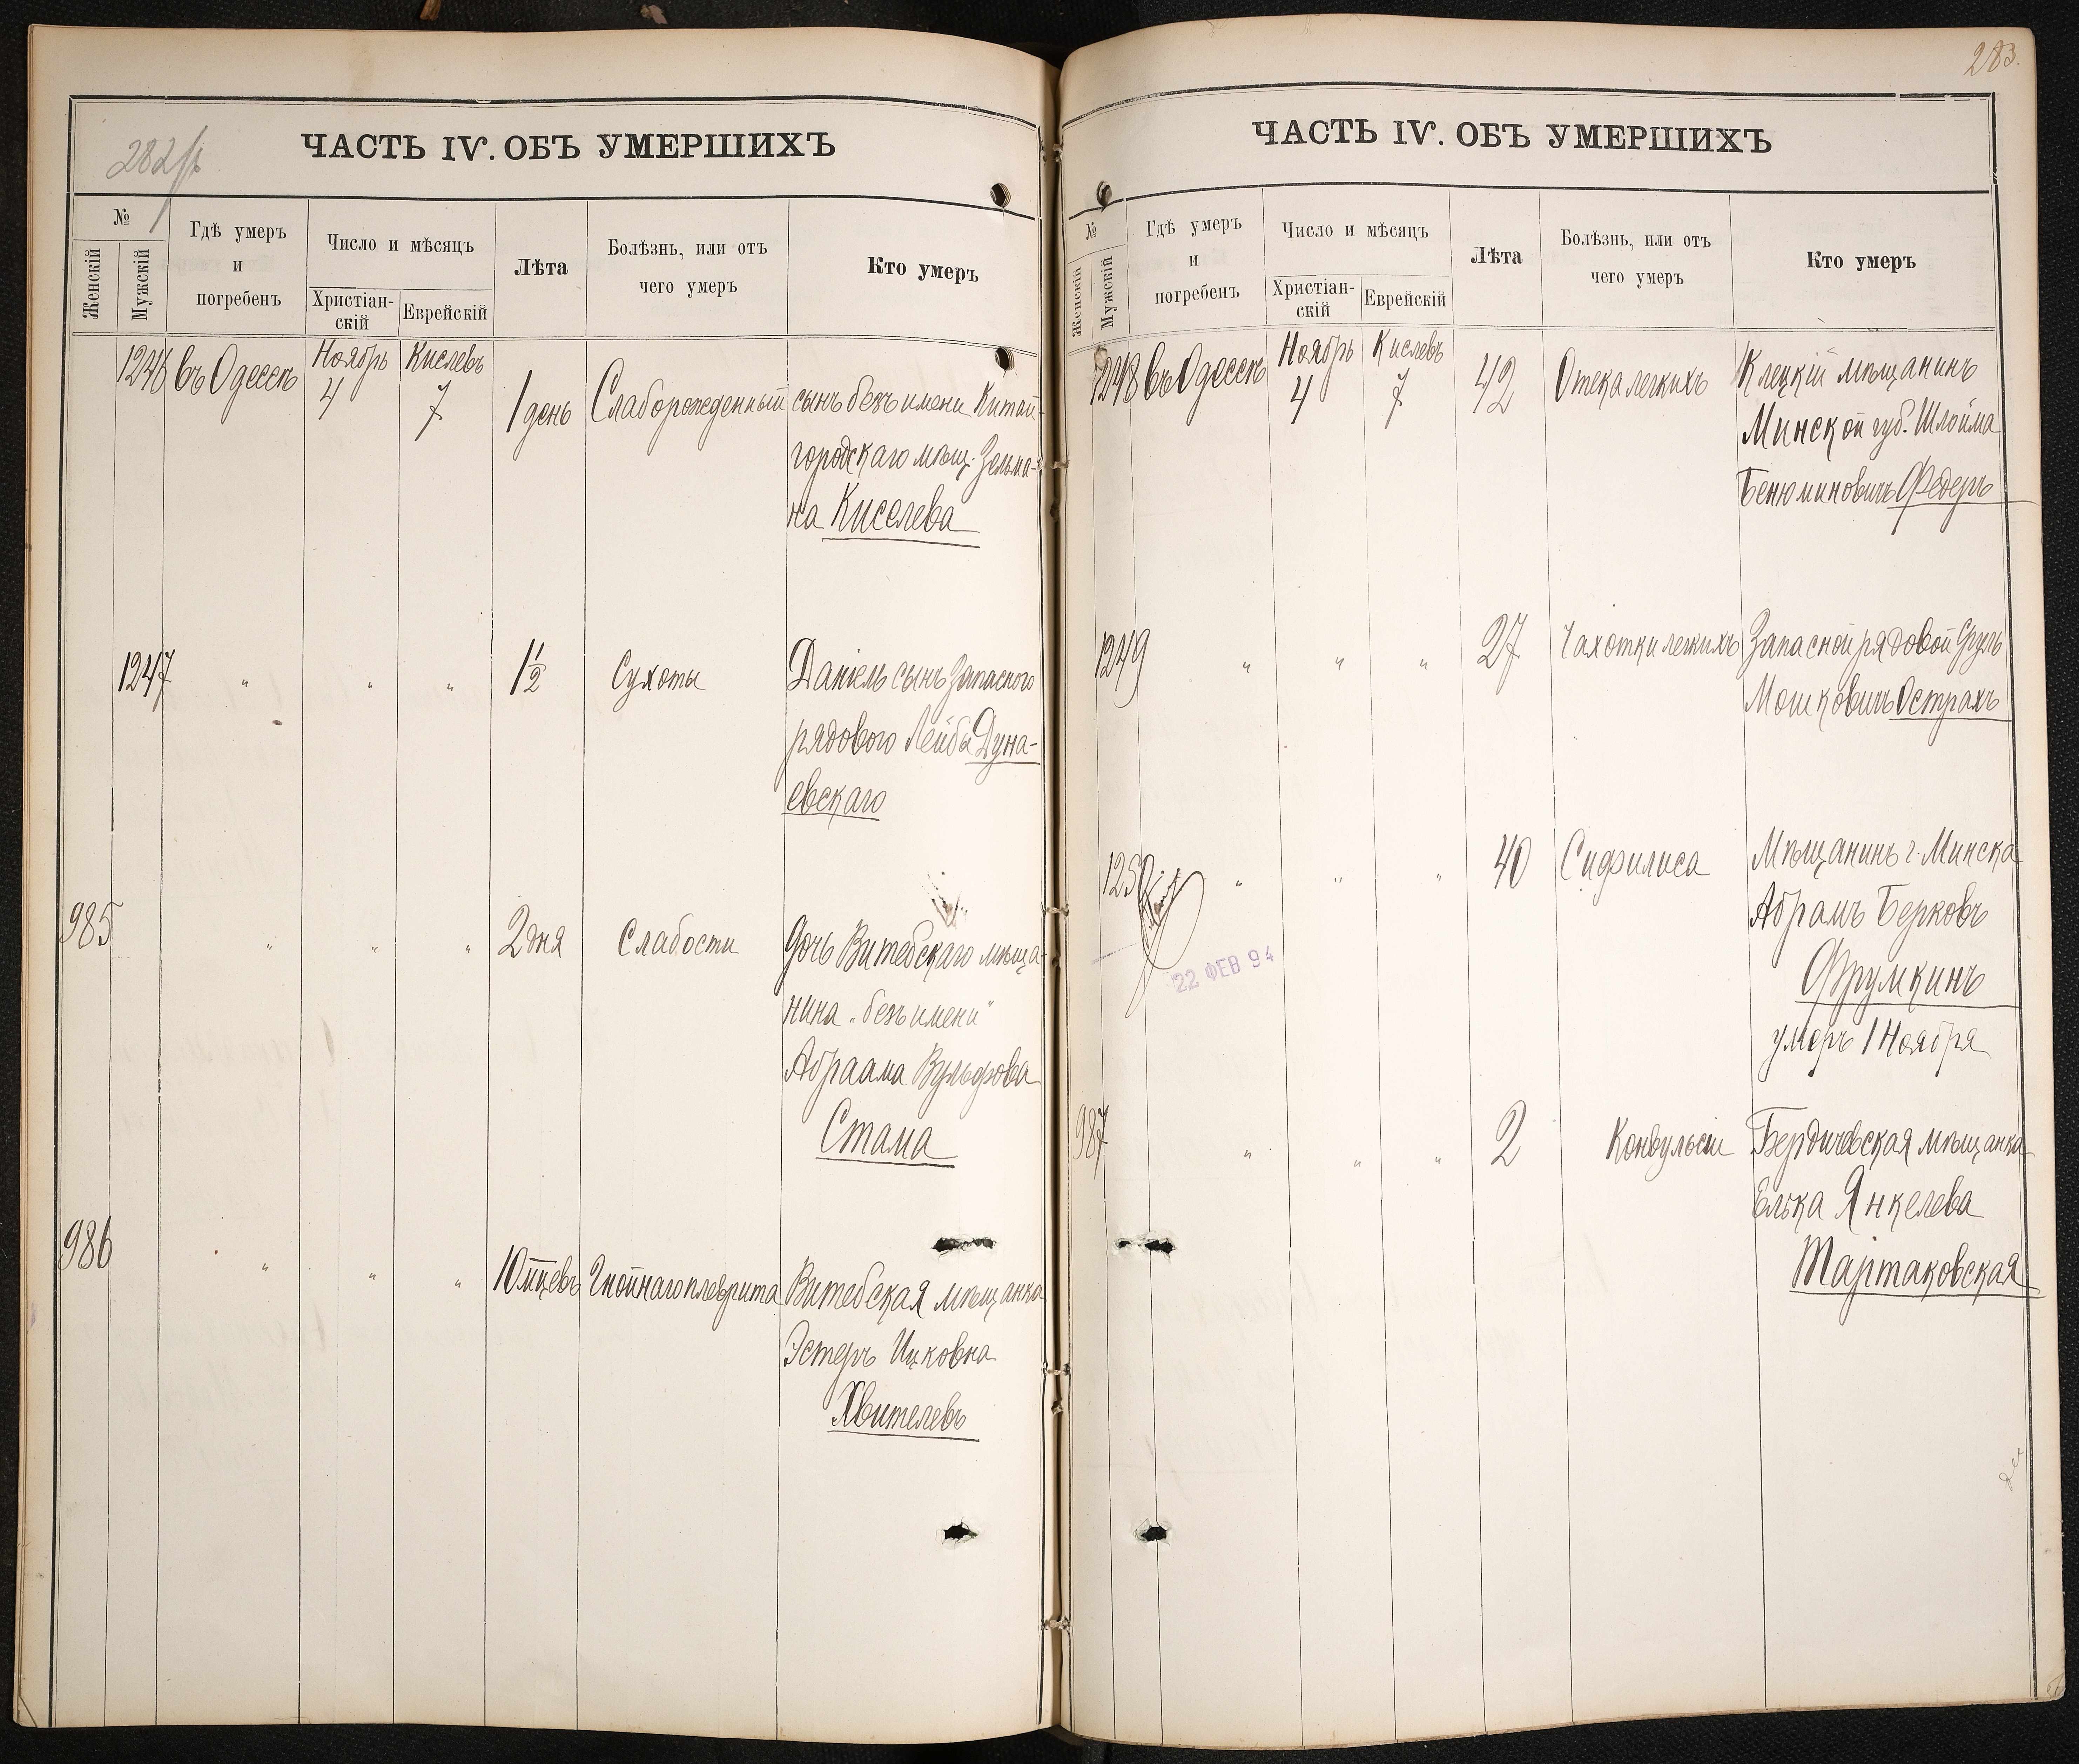 282/б
ЧАСТЬ IV. ОБЪ УМЕРШИХЪ
№
Женскій
Мужскій
Гдѣ умеръ
и
погребенъ
Число и мѣсяцъ
Христіан-
скій
Еврейскій
Лѣта
Болѣзнь, или отъ
чего умеръ
Кто умеръ
Ноябрь Кислевъ
1246 въ Одессѣ 4 7 1 день Слаборожденный сынъ безъ имени Китай-
городскаго мѣщ. Зельма-
на Киселева
1247 " " " 1½ Сухоты Даніель сынъ Запасного
рядового Лейбы Дуна-
евскаго
985 " " " 2 дня Слабости Дочь Витебскаго мѣща-
нина „безъ имени"
Абраама Вульфова
Стама
986 " " " 10 мцевъ Гнойнаго плеврита Витебская мѣщанка
Эстеръ Ицковна
Хвителевъ
283.
ЧАСТЬ IV. ОБЪ УМЕРШИХЪ
№
Женскій
Мужскій
Гдѣ умеръ
и
погребенъ
Число и мѣсяцъ
Христіан-
скій
Еврейскій
Лѣта
Болѣзнь, или отъ
чего умеръ
Кто умеръ
Ноябрь Кислевъ
1248 въ Одессѣ 4 7 42 Отека легкихъ Клецкій мѣщанинъ
Минской губ. Шлойма
Бенюминовичъ Федеръ
1249 " " " 27 Чахотки легкихъ Запасной рядовой Сруль
Мошковичъ Острахъ
1250 " " " 40 Сифилиса Мѣщанинъ г. Минска
Абрамъ Берковъ
Фрумкинъ
умеръ 1 Ноября
22 ФЕВ 94
987 " " " 2 Конвульсіи Бердичевская мѣщанка
Елька Янкелева
Тартаковская